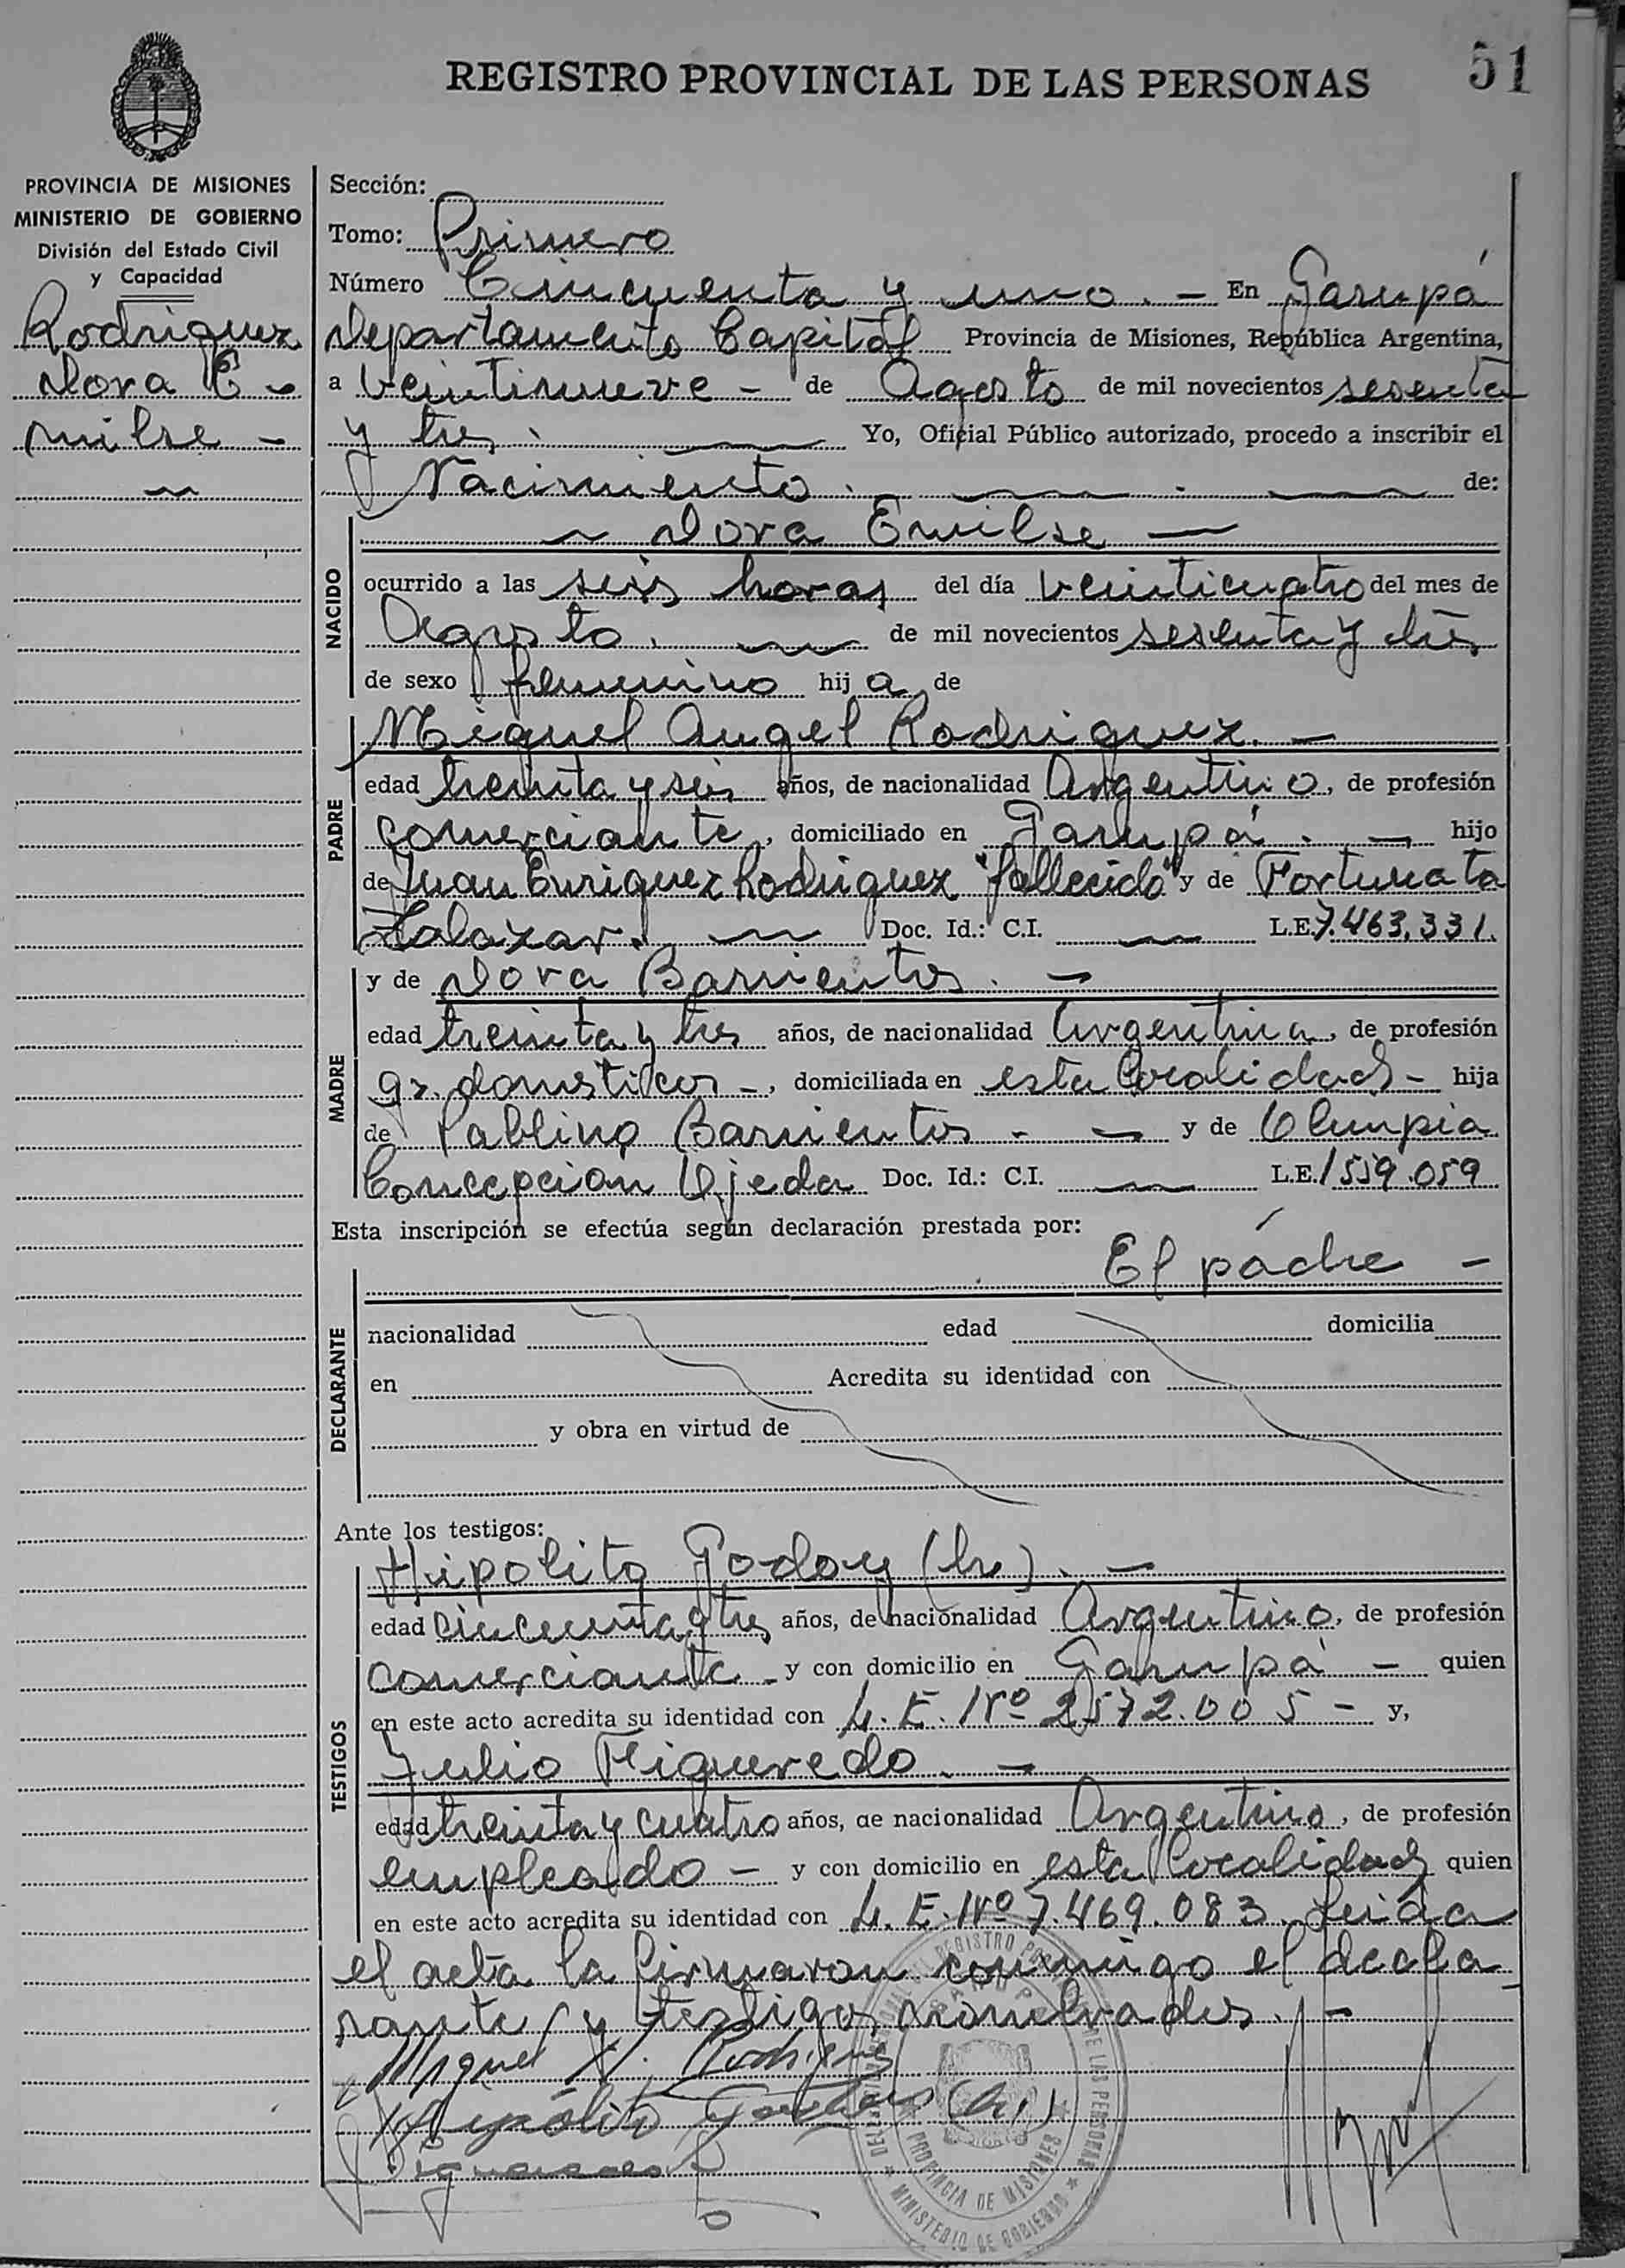 REGISTRO PROVINCIAL DE LAS PERSONAS 51
PROVINCIA DE MISIONES
MINISTERIO DE GOBIERNO
División del Estado Civil
y Capacidad
Rodriguez
Dora E-
milse -
Sección:
Tomo: Primero
Número Cincuenta y uno. - En Garupá
Departamento Capital Provincia de Misiones, República Argentina,
a veintinueve - de Agosto de mil novecientos sesenta
y tres. Yo, Oficial Público autorizado, procedo a inscribir el
Nacimiento. de:
Dora Emilse -
NACIDO
ocurrido a las seis horas del día veinticuatro del mes de
Agosto. de mil novecientos sesenta y tres
de sexo femenino hija de
Miguel Angel Rodriguez. -
PADRE
edad treinta y seis años, de nacionalidad Argentino, de profesión
comerciante, domiciliado en Garupá. - hijo
de Juan Enriquez Rodriguez "fallecido" y de Fortunata
Zalazar. Doc. Id.: C.I. L.E. 7.463.331.
y de Dora Barrientos. -
MADRE
edad treinta y tres años, de nacionalidad Argentina, de profesión
qz. domesticos -, domiciliada en esta localidad - hija
de Pablino Barrientos - y de Olimpia
Concepción Ojeda Doc. Id.: C.I. L.E. 1559.059
Esta inscripción se efectúa según declaración prestada por:
El padre -
DECLARANTE
nacionalidad edad domicilia
en Acredita su identidad con
y obra en virtud de
Ante los testigos:
TESTIGOS
Hipolito Godoy (h). -
edad cincuenta y tres años, de nacionalidad Argentino, de profesión
comerciante - y con domicilio en Garupá - quien
en este acto acredita su identidad con L.E. Nº 2572.005 - y,
Julio Figueredo. -
edad treinta y cuatro años, de nacionalidad Argentino, de profesión
empleado - y con domicilio en esta localidad quien
en este acto acredita su identidad con L.E. Nº 7.469.083. Leida
el acta la firmaron conmigo el decla-
rante y testigos nombrados. -
Miguel A. Rodriguez
Hipólito Godoy (h)
REGISTRO DE LAS PERSONAS
GARUPA
PROVINCIA DE MISIONES
MINISTERIO DE GOBIERNO